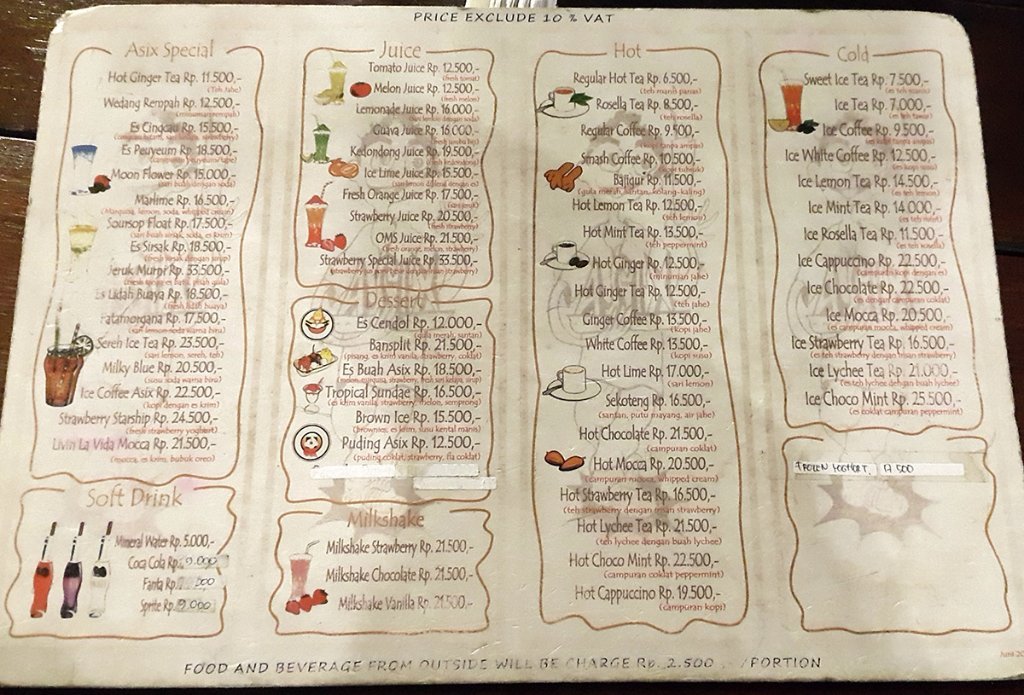 PRICE EXCLUDE 10 % VAT
Asix Special
Hot Ginger Tea Rp. 11.500,-
(Teh Jahe)
Wedang Rempah Rp. 12.500,-
Es Cingcau Rp. 15.500,-
Es Peuyeum Rp. 18.500,-
Moon Flower Rp. 15.000,-
Marlime Rp. 16.500,-
(Marquisa, lemon, soda, whipped cream)
Soursop Float Rp. 17.500,-
Es Sirsak Rp. 18.500,-
Jeruk Murni Rp. 33.500,-
Es Lidah Buaya Rp. 18.500,-
Fatamorgana Rp. 17.500,-
Sereh Ice Tea Rp. 23.500,-
(sari lemon, sereh, teh)
Milky Blue Rp. 20.500,-
(susu soda warna biru)
Ice Coffee Asix Rp. 22.500,-
(kopi dengan es krim)
Strawberry Starship Rp. 24.500,-
(fresh strawberry yoghurt)
Livin La Vida Mocca Rp. 21.500,-
(mocca, es krim, bubuk oreo)
Soft Drink
Mineral Water Rp. 5.000,-
Coca Cola Rp. 9.000
Fanta Rp.
Sprite Rp. 9.000
Juice
Tomato Juice Rp. 12.500,-
(fresh tomat)
Melon Juice Rp. 12.500,-
(fresh melon)
Lemonade Juice Rp. 16.000,-
Guava Juice Rp. 16.000,-
Kedondong Juice Rp. 19.500,-
Ice Lime Juice Rp. 15.500,-
Fresh Orange Juice Rp. 17.500,-
Strawberry Juice Rp. 20.500,-
OMS Juice Rp. 21.500,-
(fresh orange, melon, strawberry)
Strawberry Special Juice Rp. 33.500,-
Dessert
Es Cendol Rp. 12.000,-
(gula merah, santan)
Bansplit Rp. 21.500,-
(pisang, es krim vanila, strawberry, coklat)
Es Buah Asix Rp. 18.500,-
Tropical Sundae Rp. 16.500,-
(es krim vanila, strawberry, melon, semprong)
Brown Ice Rp. 15.500,-
(brownies, es krim, susu kental manis)
Puding Asix Rp. 12.500,-
(puding coklat, strawberry, fla coklat)
Milkshake
Milkshake Strawberry Rp. 21.500,-
Milkshake Chocolate Rp. 21.500,-
Milkshake Vanilla Rp. 21.500,-
Hot
Regular Hot Tea Rp. 6.500,-
(teh manis panas)
Rosella Tea Rp. 8.500,-
(teh rosella)
Regular Coffee Rp. 9.500,-
(kopi tanpa ampas)
Smash Coffee Rp. 10.500,-
(kopi tubruk)
Bajigur Rp. 11.500,-
(gula merah, santan, kolang-kaling)
Hot Lemon Tea Rp. 12.500,-
(teh lemon)
Hot Mint Tea Rp. 13.500,-
(teh peppermint)
Hot Ginger Rp. 12.500,-
(minuman jahe)
Hot Ginger Tea Rp. 12.500,-
(teh jahe)
Ginger Coffee Rp. 13.500,-
(kopi jahe)
White Coffee Rp. 13.500,-
(kopi susu)
Hot Lime Rp. 17.000,-
(sari lemon)
Sekoteng Rp. 16.500,-
(santan, putu mayang, air jahe)
Hot Chocolate Rp. 21.500,-
(campuran coklat)
Hot Mocca Rp. 20.500,-
(campuran mocca, whipped cream)
Hot Strawberry Tea Rp. 16.500,-
(teh strawberry dengan irisan strawberry)
Hot Lychee Tea Rp. 21.500,-
(teh lychee dengan buah lychee)
Hot Choco Mint Rp. 22.500,-
(campuran coklat peppermint)
Hot Cappuccino Rp. 19.500,-
(campuran kopi)
Cold
Sweet Ice Tea Rp. 7.500,-
(es teh manis)
Ice Tea Rp. 7.000,-
(es teh tawar)
Ice Coffee Rp. 9.500,-
Ice White Coffee Rp. 12.500,-
(es kopi susu)
Ice Lemon Tea Rp. 14.500,-
(es teh lemon)
Ice Mint Tea Rp. 14.000,-
(es teh mint)
Ice Rosella Tea Rp. 11.500,-
(es teh rosella)
Ice Cappuccino Rp. 22.500,-
(campuran kopi dengan es)
Ice Chocolate Rp. 22.500,-
(es dengan campuran coklat)
Ice Mocca Rp. 20.500,-
(es campuran mocca, whipped cream)
Ice Strawberry Tea Rp. 16.500,-
(es teh strawberry dengan irisan strawberry)
Ice Lychee Tea Rp. 21.000,-
(es teh lychee dengan buah lychee)
Ice Choco Mint Rp. 25.500,-
(es coklat campuran peppermint)
FROZEN YOGHURT 17.500
FOOD AND BEVERAGE FROM OUTSIDE WILL BE CHARGE Rp. 2.500 /PORTION